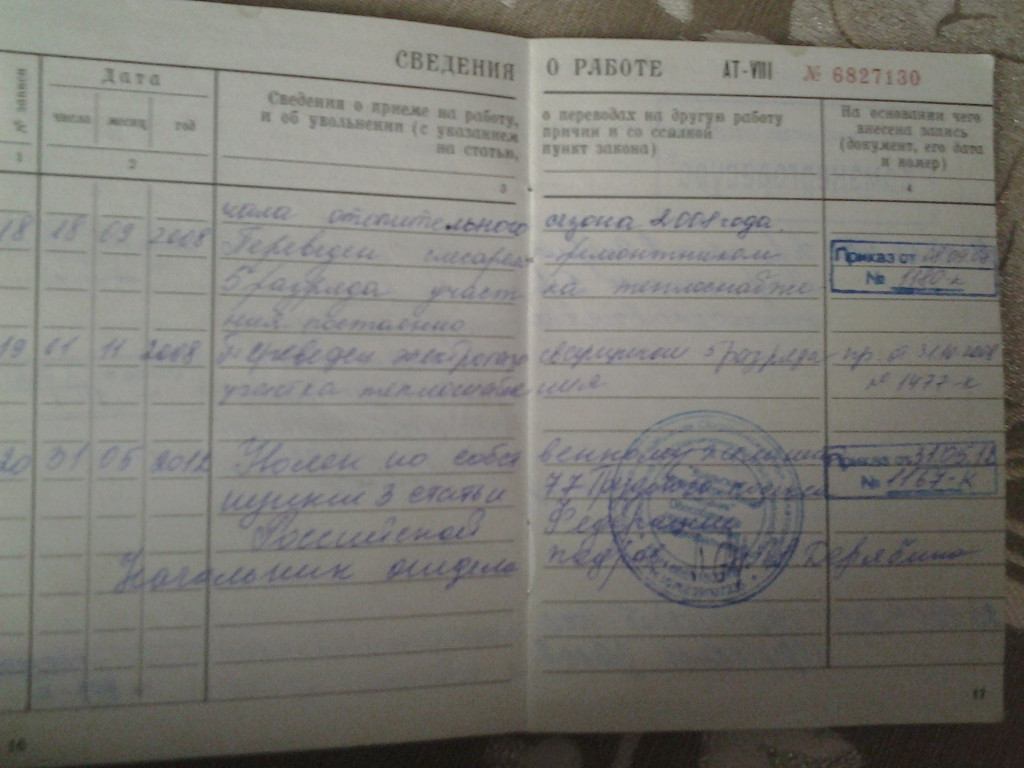 СВЕДЕНИЯ О РАБОТЕ АТ-VIII № 6827130
№ записи
Дата
число месяц год
Сведения о приеме на работу, о переводах на другую работу
и об увольнении (с указанием причин и со ссылкой
на статью, пункт закона)
На основании чего
внесена запись
(документ, его дата
и номер)
1 2 3 4
чала отопительного сезона 2008 года.
18 18 09 2008 Переведен слесарем-ремонтником Приказ от
5 разряда участка теплоснабже- № 1180-к
ния постоянно
19 01 11 2008 Переведен электрогазосварщиком 5 разряда пр. от 31.10.2008
участка теплоснабжения № 1477-к
20 31 05 2012 Уволен по собственному желанию Приказ от 31.05.12
пункт 3 статьи 77 Трудового кодекса № 1167-к
Российской Федерации
Начальник отдела кадров Дерябина
16 17